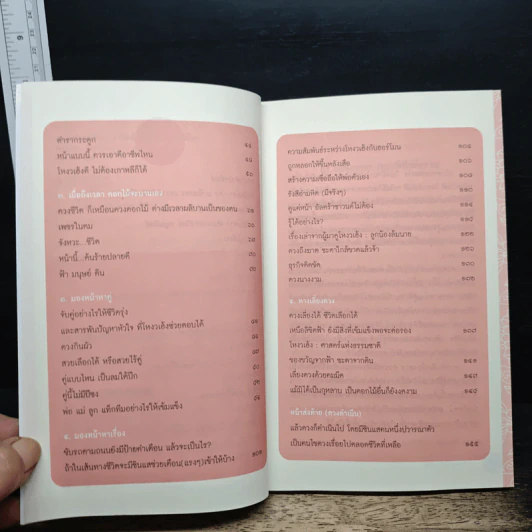 ตำรากระดูก
หน้าแบบนี้ ควรเอาดีอาชีพไหน
โหงวเฮ้งดี ไม่ต้องเกาหลีก็ได้
๒. เมื่อถึงเวลา ดอกไม้จะบานเอง
ดวงชีวิต ก็เหมือนดวงดอกไม้ ต่างมีเวลาผลิบานเป็นของตน
เพชรในตม
จังหวะ...ชีวิต
หน้านี้...ต้นร้ายปลายดี
ฟ้า มนุษย์ ดิน
๓. มองหน้าหาคู่
จับคู่อย่างไรให้ชีวิตรุ่ง
และสารพันปัญหาหัวใจ ที่โหงวเฮ้งช่วยตอบได้
ดวงกินผัว
สวยเลือกได้ หรือสวยไร้คู่
คู่แบบไหน เป็นลมใต้ปีก
คู่นี้ไม่มีปีชง
พ่อ แม่ ลูก แท็กทีมอย่างไรให้เข้มแข็ง
๔. มองหน้าหาเรื่อง
ขับรถตามถนนยังมีป้ายคำเตือน แล้วจะเป็นไร?
ถ้าในเส้นทางชีวิตจะมีซินแสช่วยเตือน(แรงๆ)เข้าให้บ้าง
ความสัมพันธ์ระหว่างโหงวเฮ้งกับฮอร์โมน
ถูกหลอกให้ขึ้นหลังเสือ
สร้างความเชื่อถือให้พ่อตัวเอง
รังสีอำมหิต (มีจริงๆ)
ดูแค่หน้า อัลตร้าซาวนด์ไม่ต้อง
รู้ได้อย่างไร?
เรื่องเล่าจากผู้มาดูโหงวเฮ้ง : ลูกน้องล้มนาย
ดวงถึงฆาต ชะตาใกล้ขาดแล้วจ้า
ธุรกิจติดขัด
ดวงนางงาม
๕. หาเลี้ยงดวง
ดวงเลี้ยงได้ ชีวิตเลือกได้
เหนือลิขิตฟ้า ยังมีสิ่งที่เข้มแข็งพอจะต่อรอง ๑๓๗
โหงวเฮ้ง : ศาสตร์แห่งธรรมชาติ
ของขวัญจากฟ้า ชะตาจากดิน
เลี้ยงดวงด้วยคมมีด
แม้มิได้เป็นกุหลาบ เป็นดอกไม้อื่นก็ยังงดงาม
หน้าส่งท้าย (ดวงดำเนิน)
แล้วดวงก็ดำเนินไป โดยมีซินแสคนหนึ่งปรารถนาตัว
เป็นคนไขดวงเรื่อยไปตลอดชีวิตที่เหลือ ๑๕๕